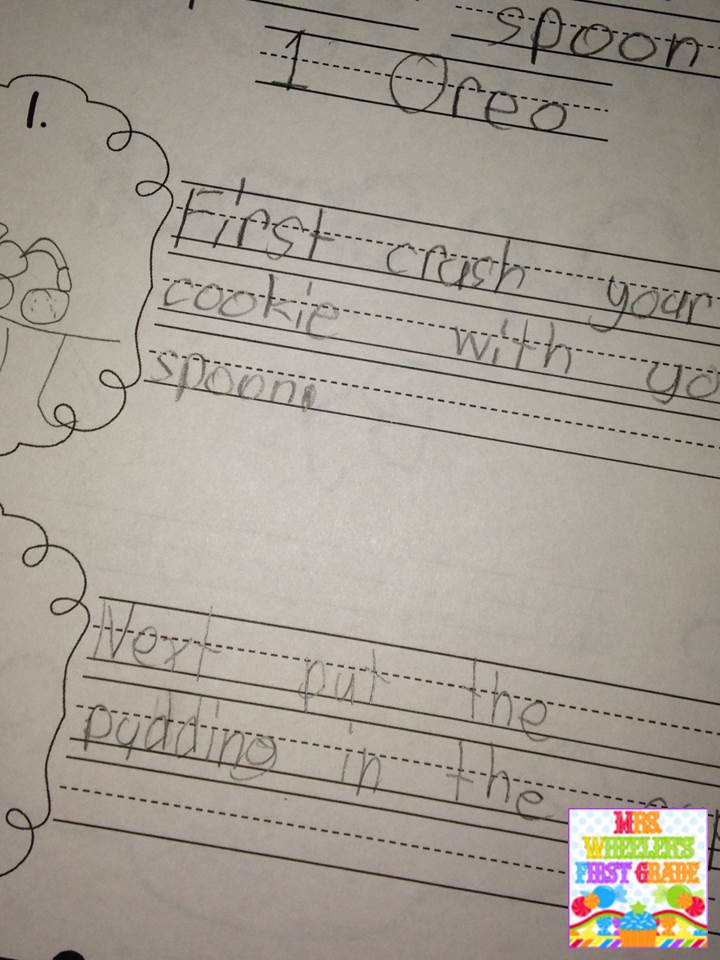 spoon
1 Oreo
1.
First crush your
cookie with yo
spoon.
Next put the
pudding in the
MRS.
WHEELER'S
FIRST GRADE